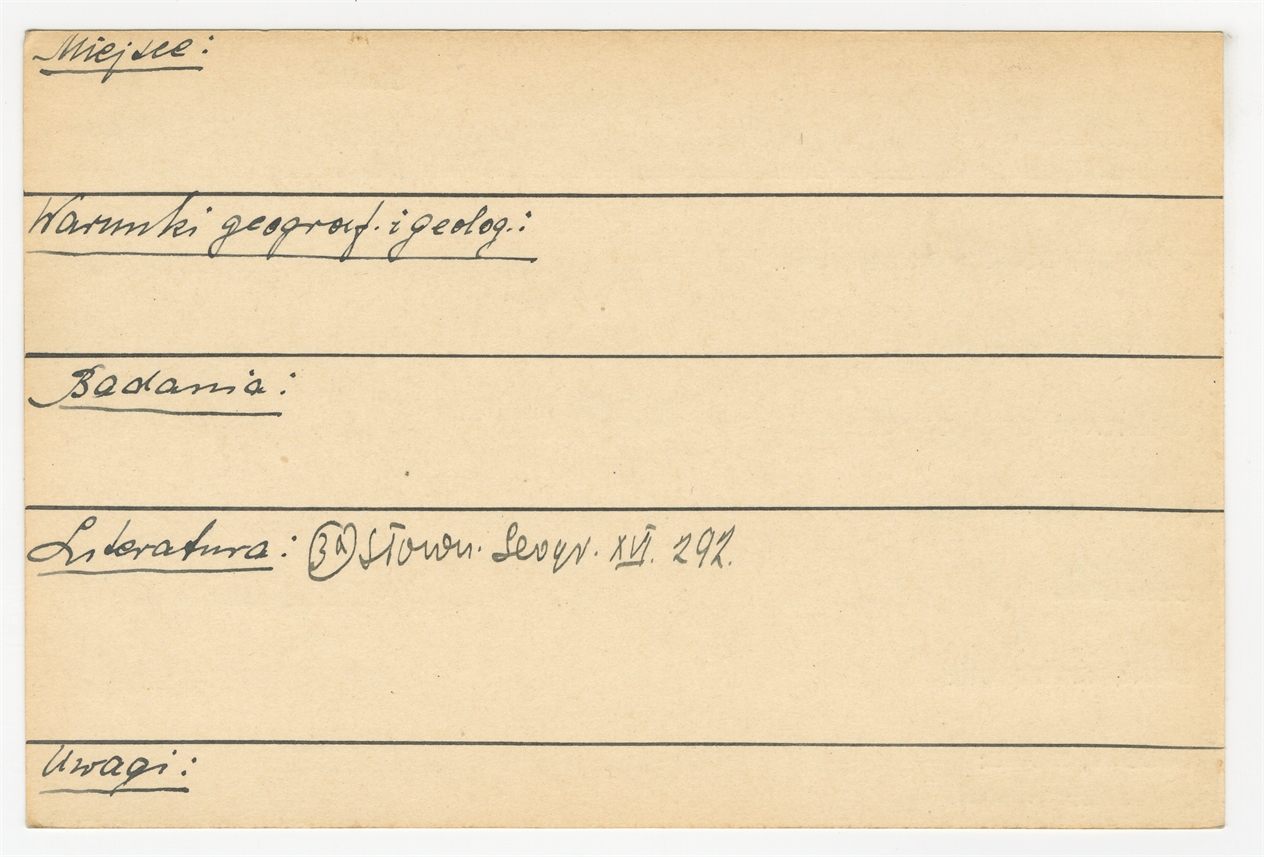 Miejsce:
Warunki geograf. i geolog.:
Badania:
Literatura: Słown. Geogr. XVI. 292.
Uwagi: